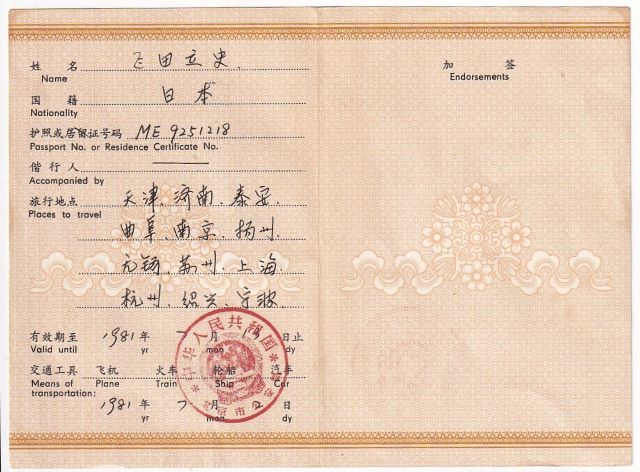 姓 名 飞田立史.
Name
国 籍 日本
Nationality
护照或居留证号码 ME 9251218
Passport No. or Residence Certificate No.
偕行人 ———
Accompanied by
旅行地点 天津、济南、泰安、
Places to travel
曲阜、南京、扬州、
无锡、苏州、上海、
杭州、绍兴、宁波.
有效期至 1981 年 7 月 日止
Valid until yr mon dy
交通工具 飞机 火车 轮船 汽车
Means of transportation: Plane Train Ship Car
1981 年 7 月 日
yr mon dy
中华人民共和国
北京市公安
加 签
Endorsements